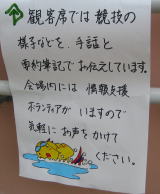 観客席では競技の
様子などを、手話と
要約筆記でお伝えしています。
会場内には 情報支援
ボランティアが いますので
気軽に お声をかけて
ください。